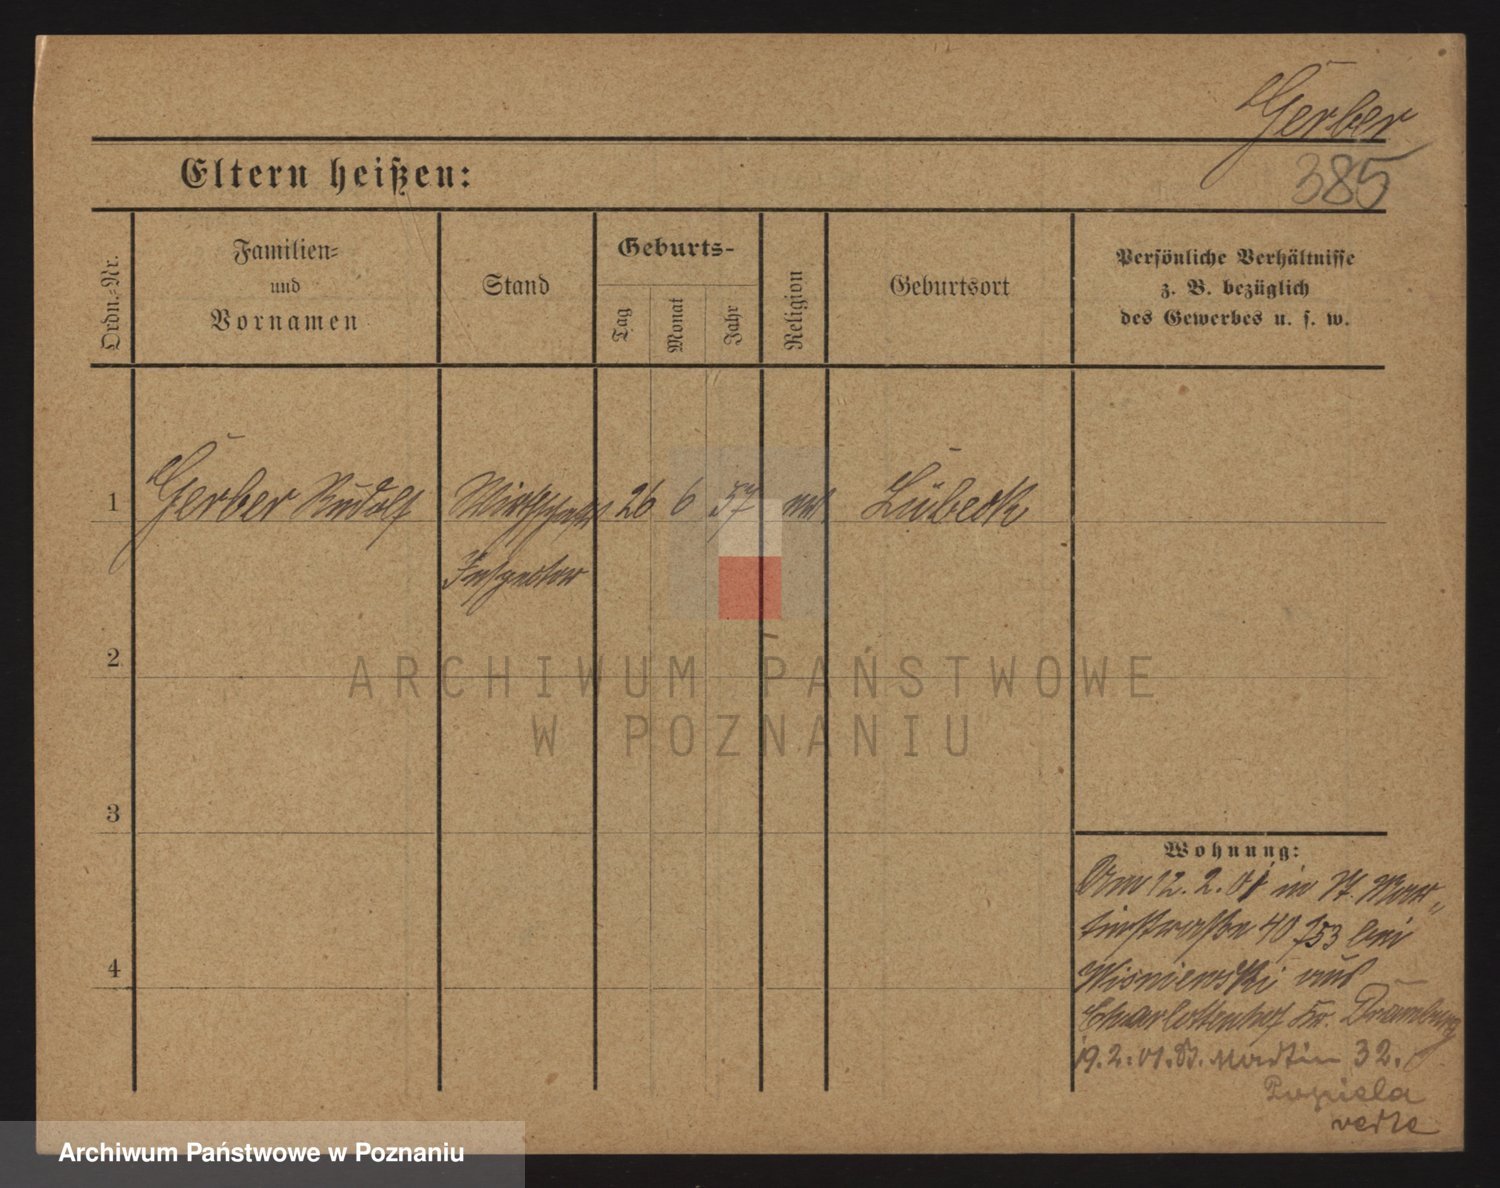 Gerber
385
Eltern heißen:
Ordn.=Nr.
Familien=
und
Vornamen
Stand
Geburts-
Tag
Monat
Jahr
Religion
Geburtsort
Persönliche Verhältnisse
z. B. bezüglich
des Gewerbes u. s. w.
1 Gerber Rudolf Wirtschafts 26 6 57 Lübeck
Inspector
2
3
4
Wohnung:
Am 12. 2. 01 in St. Mar„
tinstraße 40 bei
Wisniewski aus
Charlottenhof Kr. Dramburg
19. 2. 01. St. Martin 32.
Popiela
verte
ARCHIWUM PAŃSTWOWE
W POZNANIU
Archiwum Państwowe w Poznaniu